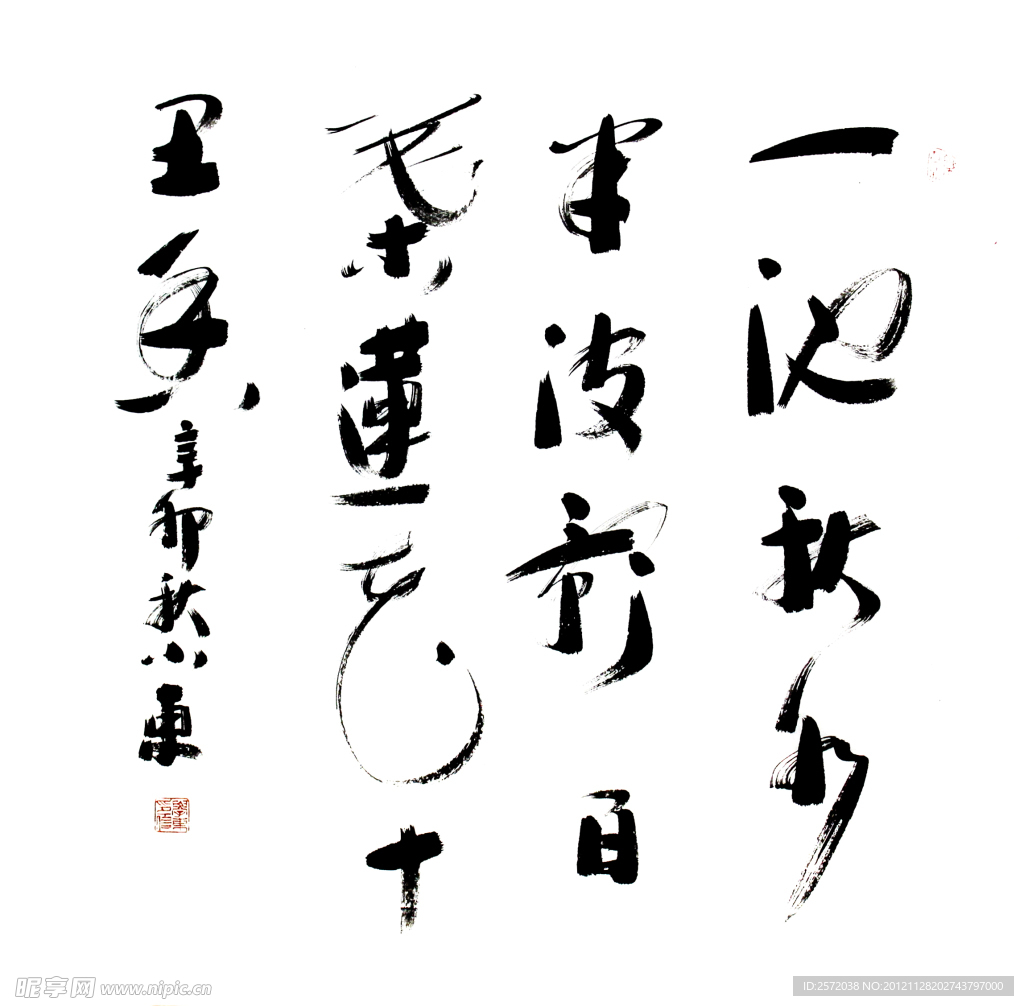 一池秋水
半波影百
葉蓮花十
里香 辛卯秋小東
昵享网 www.nipic.cn
ID:2572038 NO:20121128202743797000